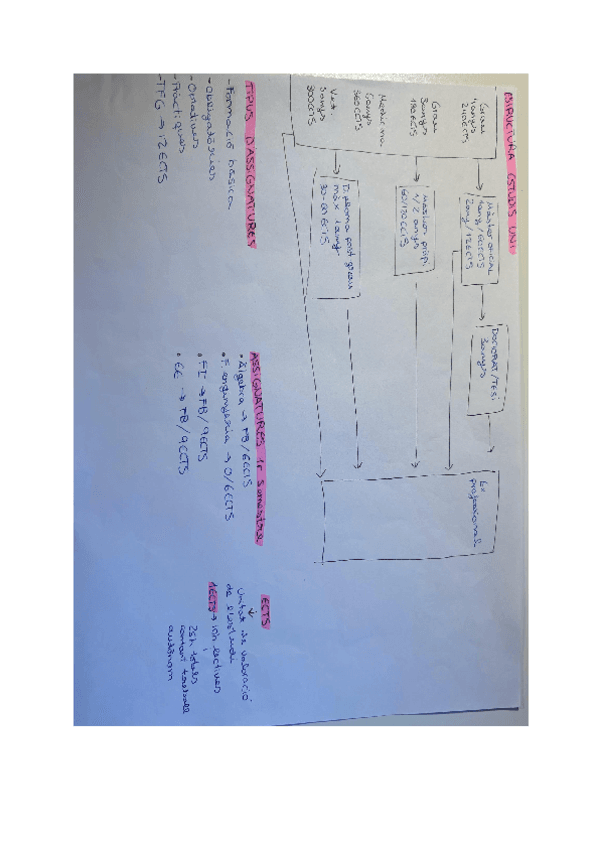 ESTRUCTURA ESTUDIS UNI
Grau
4 anys
240 ECTS
Grau
3 anys
180 ECTS
6 anys
360 ECTS
5 anys
300 ECTS
Màster oficial
1 any / 60 ECTS
2 any / 12 ECTS
Màster propi
1/2 anys
60/120 ECTS
Diploma post grau
màx 1 any
30-60 ECTS
DOCTORAT / TESI
3 anys
Ex
professional
TIPUS D'ASSIGNATURES
- Formació bàsica
- Obligatòries
- Optatives
- Pràctiques
- TFG → 12 ECTS
ASSIGNATURES 1r Semestre
• Àlgebra → FB / 6 ECTS
• F. enginyeria → O / 6 ECTS
• FI → FB / 9 ECTS
• → FB / 9 ECTS
ECTS
↓
Unitat de valoració
de
1 ECTS → 10h lectives
25h totals
treball
autònom